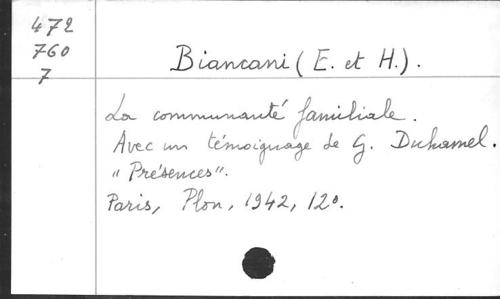 472
760
7
Biancani (E. et H.).
La communauté familiale.
Avec un témoignage de G. Duhamel.
"Présences".
Paris, Plon, 1942, 12º.